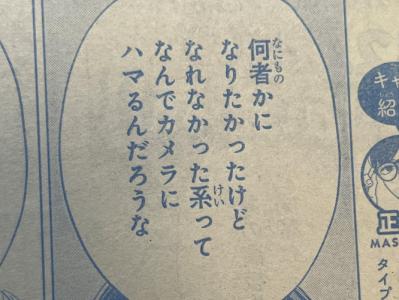 何者かに
なりたかったけど
なれなかった系って
なんでカメラに
ハマるんだろうな
なにもの
けい
キャ
紹
正
MAS
タイプ